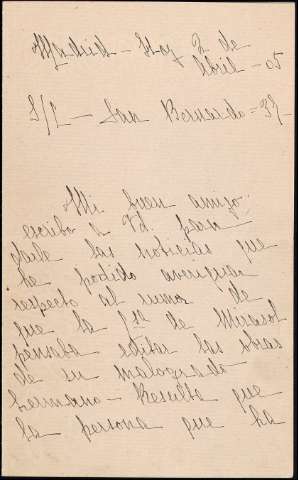 Madrid - Hoy 2 de
Abril - 05
S/C - San Bernardo - 33 -
Mi buen amigo:
escribo a Vd. para
darle las noticias que
he podido averiguar
respecto al rumor de
que la Sra de Mirasol
pensaba editar las obras
de su malogrado
hermano - Resulta que
la persona que ha